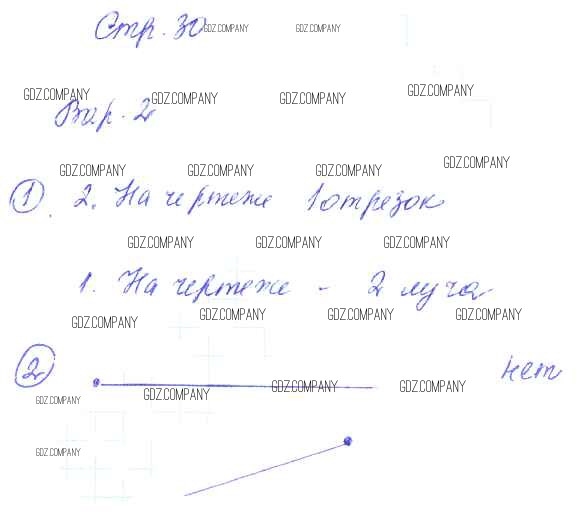 Стр. 30 GDZ.COMPANY GDZ.COMPANY
GDZ.COMPANY GDZ.COMPANY GDZ.COMPANY GDZ.COMPANY
Вар. 2
GDZ.COMPANY GDZ.COMPANY GDZ.COMPANY GDZ.COMPANY
1 2. На чертеже 1 отрезок
GDZ.COMPANY GDZ.COMPANY GDZ.COMPANY
1. На чертеже - 2 луча
GDZ.COMPANY GDZ.COMPANY GDZ.COMPANY GDZ.COMPANY
2 нет
GDZ.COMPANY GDZ.COMPANY GDZ.COMPANY GDZ.COMPANY
GDZ.COMPANY